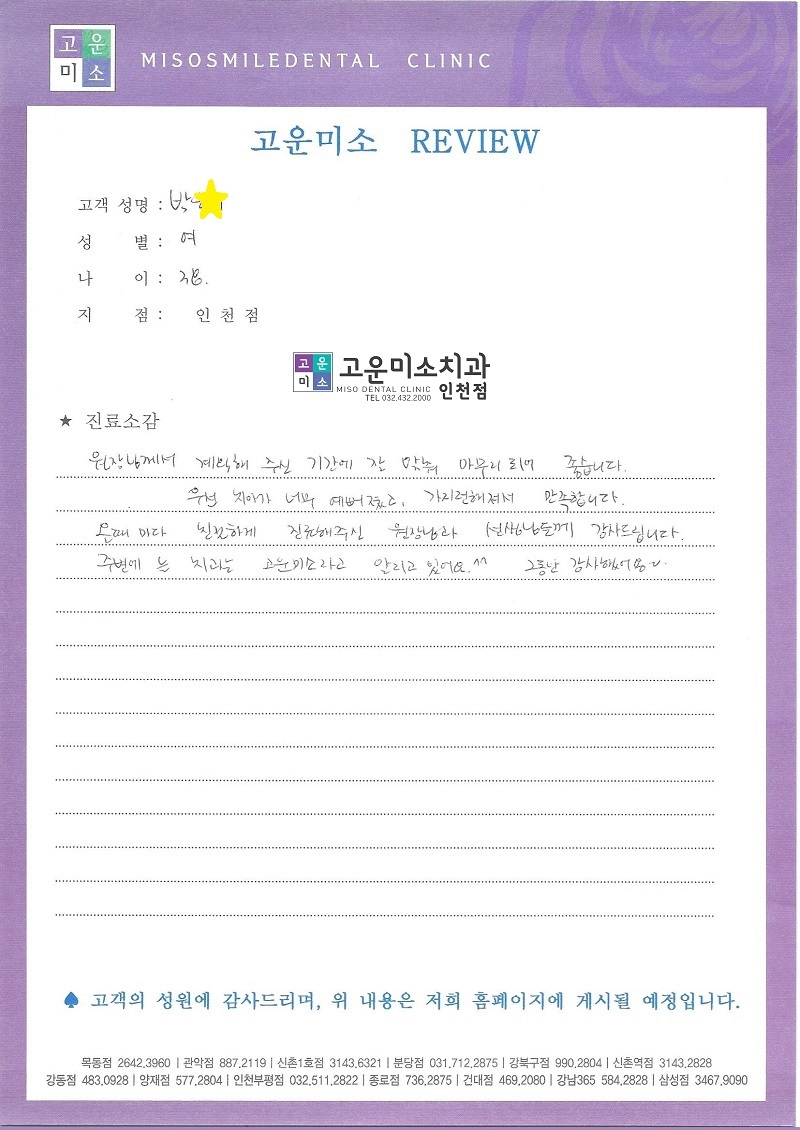 고운
미소
MISOSMILEDENTAL CLINIC
고운미소 REVIEW
고객 성명 : 박
성 별 : 여
나 이 : 38.
지 점 : 인 천 점
고운
미소
고운미소치과
MISO DENTAL CLINIC 인천점
TEL 032.432.2000
★ 진료소감
원장님께서 계획해 주신 기간에 잘 맞춰 마무리 되어 좋습니다.
우선 치아가 너무 예뻐졌고, 가지런해져서 만족합니다.
올때 마다 친절하게 진료해주신 원장님과 선생님들께 감사드립니다.
주변에 치과는 고운미소라고 알리고 있어요.^^ 그동안 감사했어요~
♠ 고객의 성원에 감사드리며, 위 내용은 저희 홈페이지에 게시될 예정입니다.
목동점 2642.3960 | 관악점 887.2119 | 신촌1호점 3143.6321 | 분당점 031.712.2875 | 강북구점 990.2804 | 신촌역점 3143.2828
강동점 483.0928 | 양재점 577.2804 | 인천부평점 032.511.2822 | 종로점 736.2875 | 건대점 469.2080 | 강남365 584.2828 | 삼성점 3467.9090